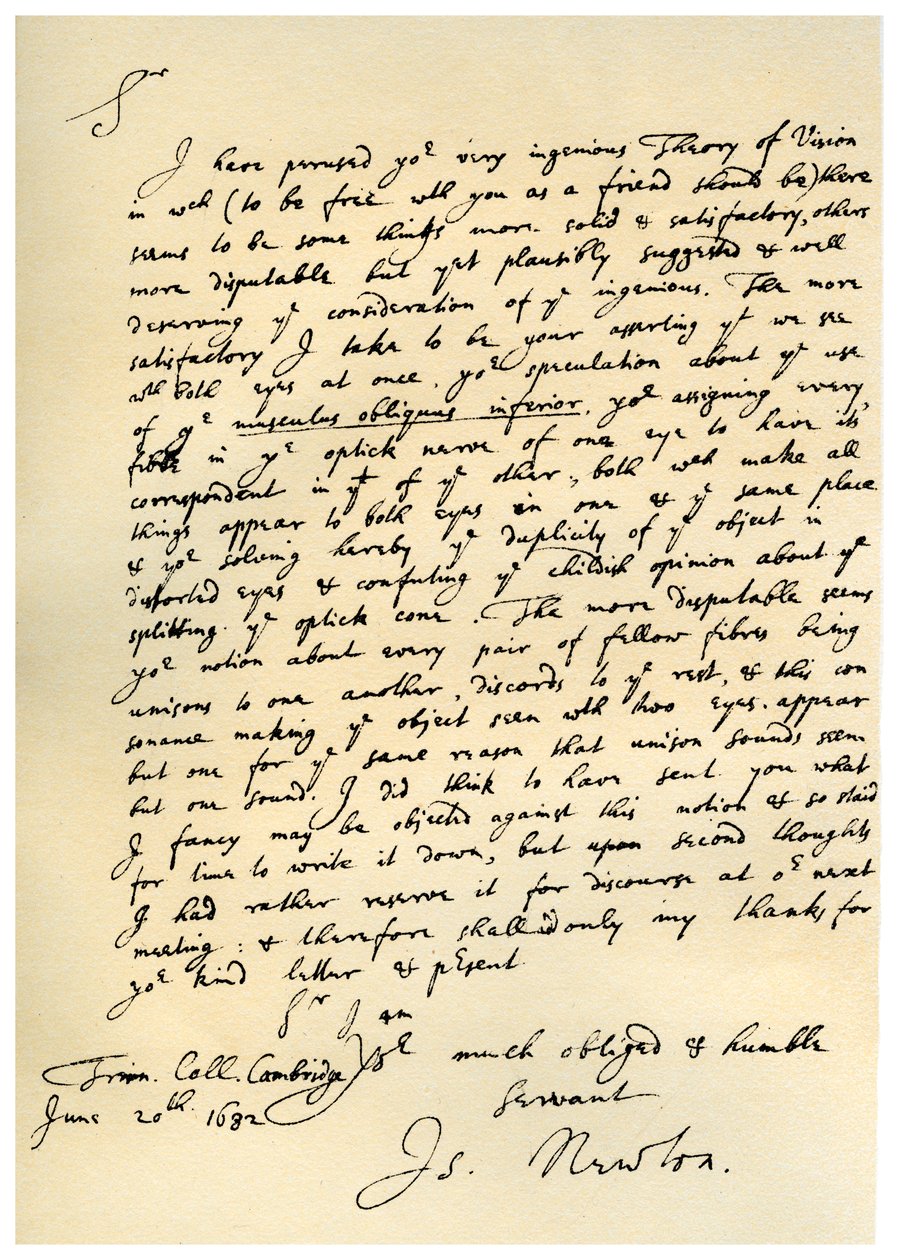 Sr
I have perused yor very ingenious Theory of Vision
in wch (to be free wth you as a friend should be) there
seems to be some things more solid & satisfactory, others
more disputable but yet plausibly suggested & well
deserving ye consideration of ye ingenious. The more
satisfactory I take to be your asserting yt we see
wth both eyes at once, yor speculation about ye use
of ye musculus obliquus inferior, yor assigning every
fibre in ye optick nerve of one eye to have its
correspondent in yt of ye other, both wch make all
things appear to both eyes in one & ye same place
& yor solving hereby ye duplicity of ye object in
distorted eyes & confuting ye childish opinion about ye
splitting ye optick cone. The more disputable seems
yor notion about every pair of fellow fibres being
unisons to one another, discords to ye rest, & this con
sonance making ye object seen wth two eyes appear
but one for ye same reason that unison sounds seem
but one sound. I did think to have sent you what
I fancy may be objected against this notion & so staid
for time to write it down, but upon second thoughts
I had rather reserve it for discourse at or next
meeting: & therefore shall add only my thanks for
yor kind letter & pesent
Sr I am
Yor much obliged & humble
Servant
Trin. Coll. Cambridge
June 20th 1682
Is. Newton.